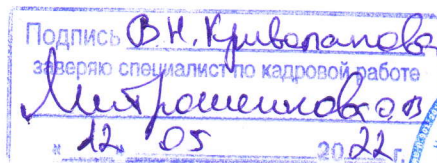 Подпись В.Н. Кривопапова
заверяю специалист по кадровой работе
Митрошенкова О.В
" 12 05 2022 г.